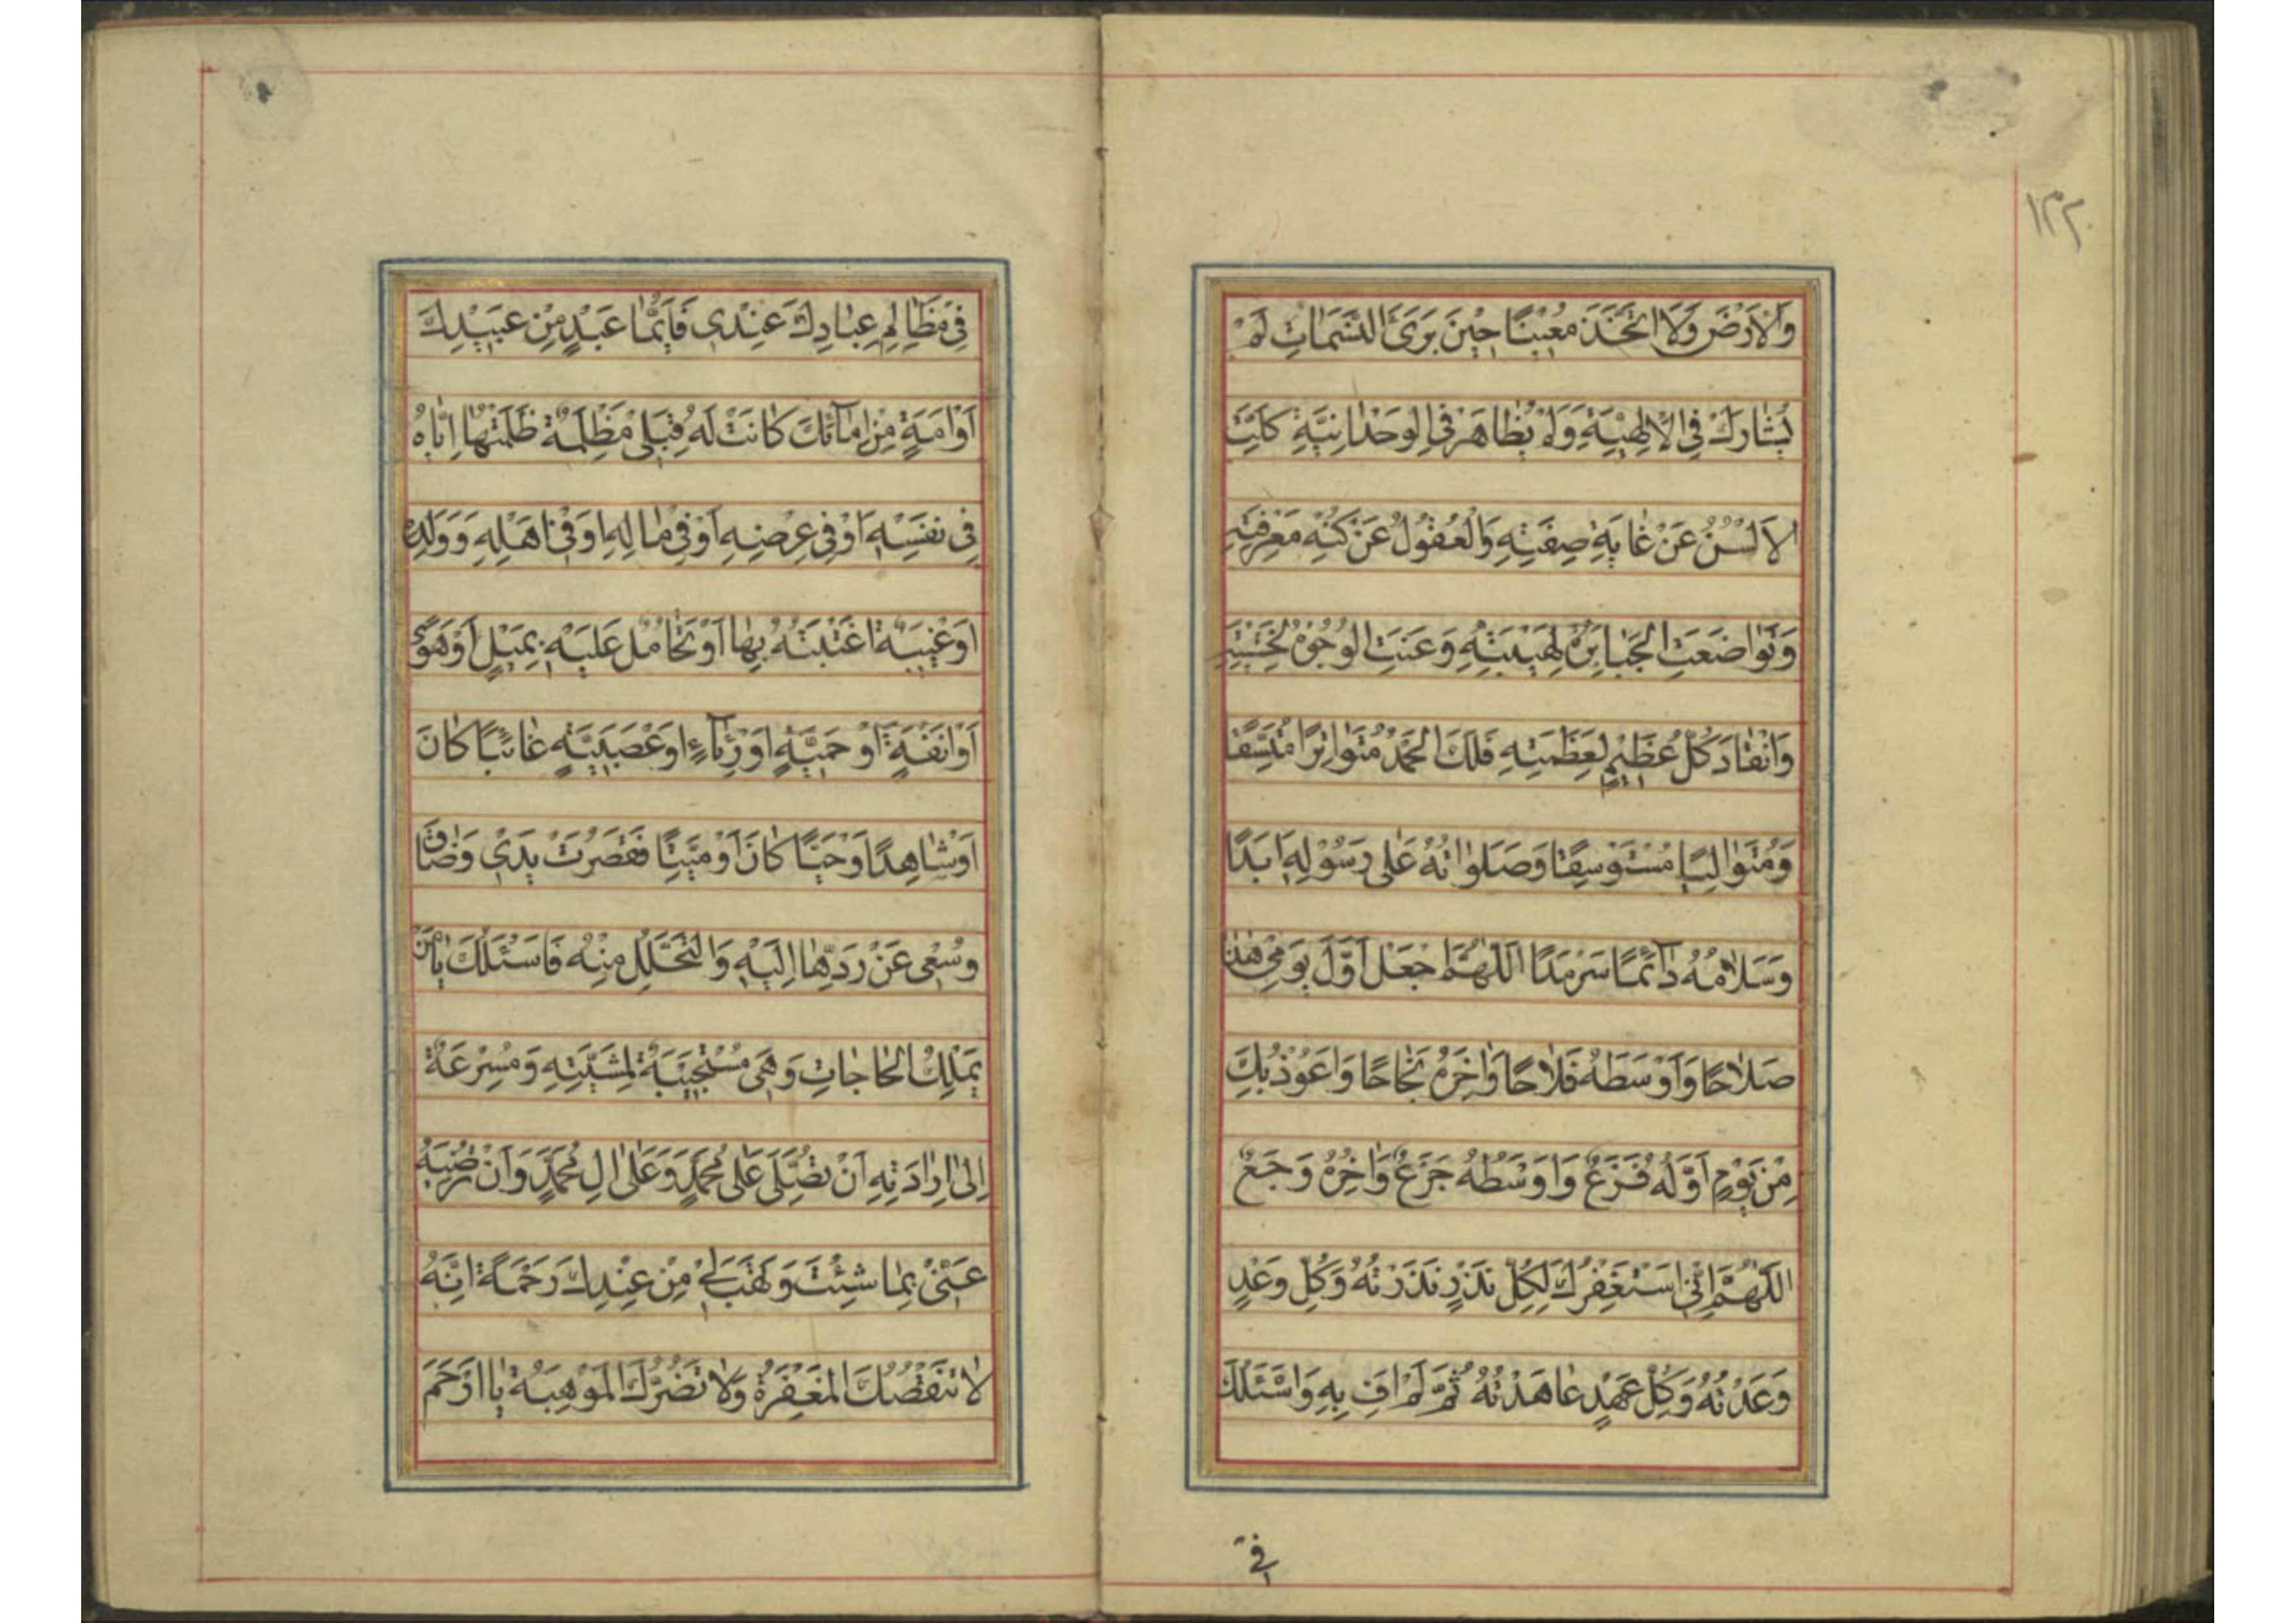 ١٢٢
وَالْاَرْضَ وَلَا اتَّخَذَ مُعِيْنًا حِيْنَ بَرَئَ النَّسَمَاتِ لَمْ
يُشَارَكْ فِي الْاِلٰهِيَّةِ وَلَمْ يُظَاهَرْ فِي الْوَحْدَانِيَّةِ كَلَّتِ
الْاَلْسُنُ عَنْ غَايَةِ صِفَتِهِ وَالْعُقُوْلُ عَنْ كُنْهِ مَعْرِفَتِهِ
وَتَوَاضَعَتِ الْجَبَابِرَةُ لِهَيْبَتِهِ وَعَنَتِ الْوُجُوْهُ لِخَشْيَتِهِ
وَانْقَادَ كُلُّ عَظِيْمٍ لِعَظَمَتِهِ فَلَكَ الْحَمْدُ مُتَوَاتِرًا مُتَّسِقًا
وَمُتَوَالِيًا مُسْتَوْسِقًا وَصَلَوَاتُهُ عَلٰى رَسُوْلِهِ اَبَدًا
وَسَلَامُهُ دَآئِمًا سَرْمَدًا اَللّٰهُمَّ اجْعَلْ اَوَّلَ يَوْمِيْ هٰذَا
صَلَاحًا وَاَوْسَطَهُ فَلَاحًا وَاٰخِرَهُ نَجَاحًا وَاَعُوْذُ بِكَ
مِنْ يَوْمٍ اَوَّلُهُ فَزَعٌ وَاَوْسَطُهُ جَزَعٌ وَاٰخِرُهُ وَجَعٌ
اَللّٰهُمَّ اِنِّيْ اَسْتَغْفِرُكَ لِكُلِّ نَذْرٍ نَذَرْتُهُ وَكُلِّ وَعْدٍ
وَعَدْتُهُ وَكُلِّ عَهْدٍ عَاهَدْتُهُ ثُمَّ لَمْ اَفِ بِهِ وَاَسْئَلُكَ
في
فِيْ مَظَالِمِ عِبَادِكَ عِنْدِيْ فَاَيُّمَا عَبْدٍ مِنْ عَبِيْدِكَ
اَوْ اَمَةٍ مِنْ اِمَآئِكَ كَانَتْ لَهُ قِبَلِيْ مَظْلِمَةٌ ظَلَمْتُهَا اِيَّاهُ
فِيْ نَفْسِهِ اَوْ فِيْ عِرْضِهِ اَوْ فِيْ مَالِهِ اَوْ فِيْ اَهْلِهِ وَوَلَدِهِ
اَوْ غِيْبَةٌ اغْتَبْتُهُ بِهَا اَوْ تَحَامُلٌ عَلَيْهِ بِمَيْلٍ اَوْ هَوًى
اَوْ اَنَفَةٍ اَوْ حَمِيَّةٍ اَوْ رِيَآءٍ اَوْ عَصَبِيَّةٍ غَائِبًا كَانَ
اَوْ شَاهِدًا اَوْ حَيًّا كَانَ اَوْ مَيِّتًا فَقَصُرَتْ يَدِيْ وَضَاقَ
وُسْعِيْ عَنْ رَدِّهَا اِلَيْهِ وَالتَّحَلُّلِ مِنْهُ فَاَسْئَلُكَ يَا مَنْ
يَمْلِكُ الْحَاجَاتِ وَهِيَ مُسْتَجِيْبَةٌ لِمَشِيَّتِهِ وَمُسْرِعَةٌ
اِلٰى اِرَادَتِهِ اَنْ تُصَلِّيَ عَلٰى مُحَمَّدٍ وَعَلٰى اٰلِ مُحَمَّدٍ وَاَنْ تُرْضِيَهُ
عَنِّيْ بِمَا شِئْتَ وَتَهَبَ لِيْ مِنْ عِنْدِكَ رَحْمَةً اِنَّهُ
لَا تَنْقُصُكَ الْمَغْفِرَةُ وَلَا تَضُرُّكَ الْمَوْهِبَةُ يَا اَرْحَمَ